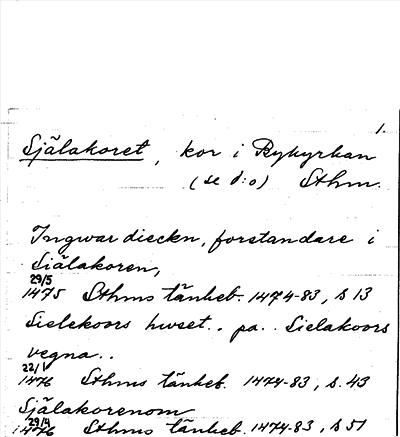 1.
Själakoret, kor i Bykyrkan
(se d:o) Sthm.
Ingwar dieckn, forstandare i
Siälakoren,
29/5
1475 Sthms tänkeb. 1474-83, s 13
Sielekoors hwset.. pa.. Sielakoors
vegna..
22/1
1476 Sthms tänkeb. 1474-83, s. 43
Själakorenom
29/4
1476 Sthms tänkeb. 1474-83, s 51